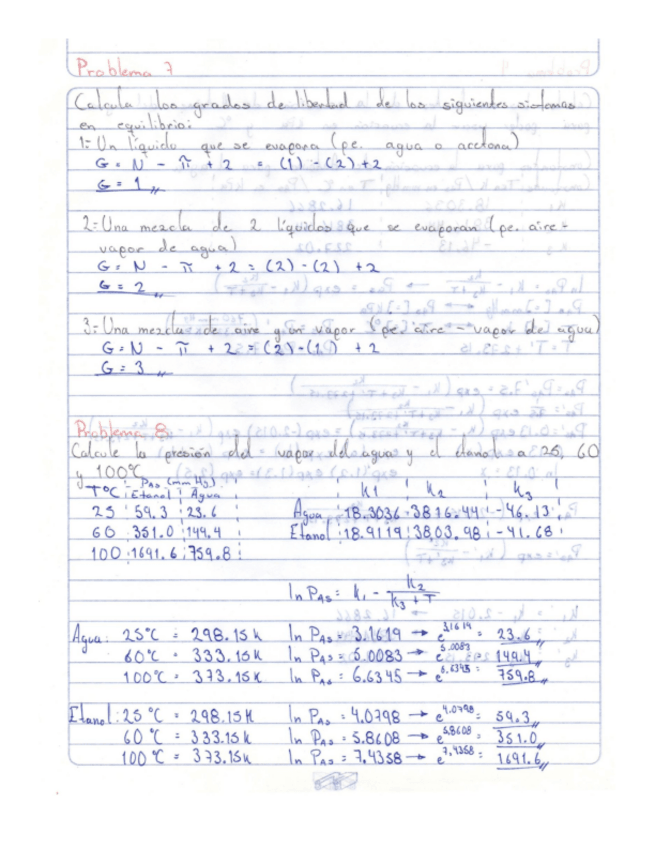 Problema 7
Calcula los grados de libertad de los siguientes sistemas
en equilibrio:
1= Un líquido que se evapora (pe. agua o acetona)
G = N - π + 2 = (1) - (2) + 2
G = 1 ,,
2= Una mezcla de 2 líquidos que se evaporan (pe. aire -
vapor de agua)
G = N - π + 2 = (2) - (2) + 2
G = 2 ,,
3= Una mezcla de aire y un vapor (pe. aire - vapor de agua)
G = N - π + 2 = (2) - (1) + 2
G = 3 ,,
Problema 8
Calcule la presión del vapor del agua y el etanol a 25, 60
y 100°C
T°C PAS (mm Hg) Etanol Agua
25 59.3 23.6
60 351.0 149.4
100 1691.6 759.8
K1 K2 K3
Agua 18.3036 3816.44 -46.13
Etanol 18.9119 3803.98 -41.68
ln PAS = K1 - K2 / K3 + T
Agua: 25°C = 298.15K ln PAS = 3.1619 → e^3.1619 = 23.6 ,,
60°C = 333.15K ln PAS = 5.0083 → e^5.0083 = 149.4 ,,
100°C = 373.15K ln PAS = 6.6345 → e^6.6345 = 759.8 ,,
Etanol: 25°C = 298.15K ln PAS = 4.0798 → e^4.0798 = 59.3 ,,
60°C = 333.15K ln PAS = 5.8608 → e^5.8608 = 351.0 ,,
100°C = 373.15K ln PAS = 7.4358 → e^7.4358 = 1691.6 ,,